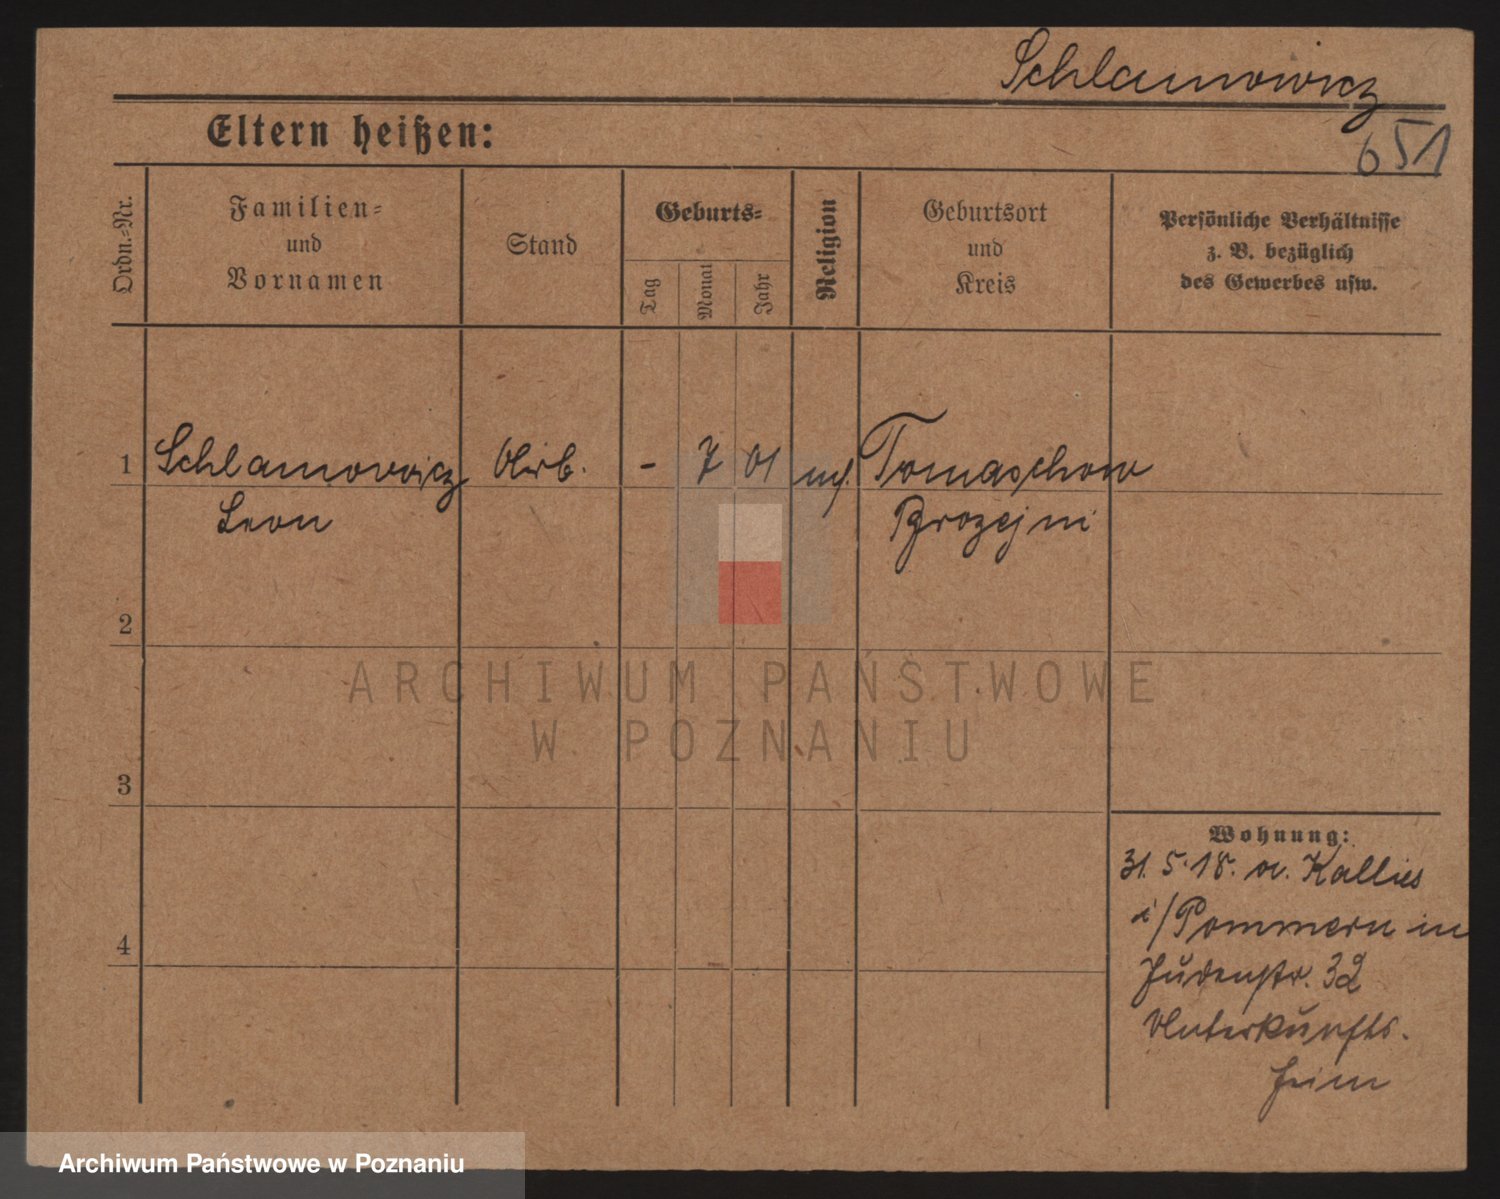 Schlamowicz
Eltern heißen:
651
Ordn.-Nr.
Familien-
und
Vornamen
Stand
Geburts-
Tag
Monat
Jahr
Religion
Geburtsort
und
Kreis
Persönliche Verhältnisse
z. B. bezüglich
des Gewerbes usw.
1
Schlamowicz
Leon
Arb.
- 7 01
mos.
Tomaschow
2
3
4
Wohnung:
31. 5. 18. a. Kallies
i/Pommern in
Judenstr. 32
Unterkunfts-
heim
ARCHIWUM PAŃSTWOWE
W POZNANIU
Archiwum Państwowe w Poznaniu